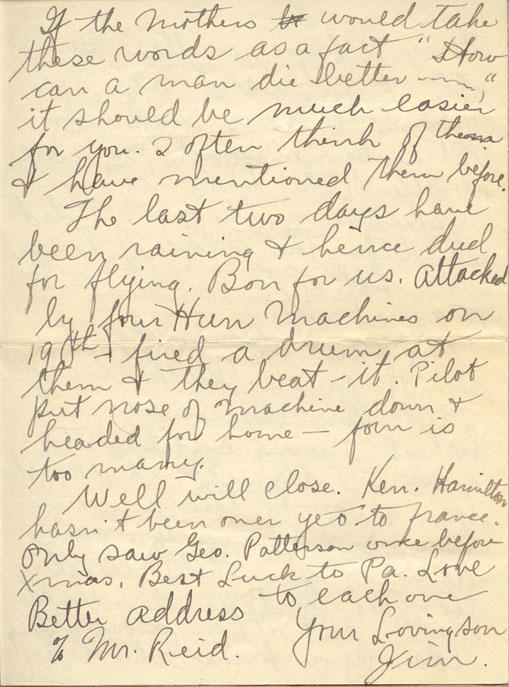 If the mothers would take
these words as a fact "How
can a man die better ——,"
it should be much easier
for you. I often think of them
& have mentioned them before.
The last two days have
been raining & hence dud
for flying. Bon for us. Attacked
by four Hun machines on
19th – fired a drum at
them & they beat-it. Pilot
put nose of machine down &
headed for home – four is
too many.
Well will close. Ken. Hamilton
hasn't been over yet to France.
Only saw Geo. Patterson once before
Xmas. Best Luck to Pa. Love
to each one
Your Loving son
Jim.
Better address
℅ Mr. Reid.